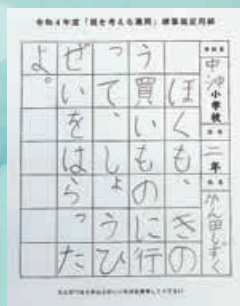 令和4年度「税を考える週間」標語指定用紙
中沖小学校
二年
かん田しずく
ぼくも、きの
う買いものに行
って、しょうひ
ぜいをはらった
よ。